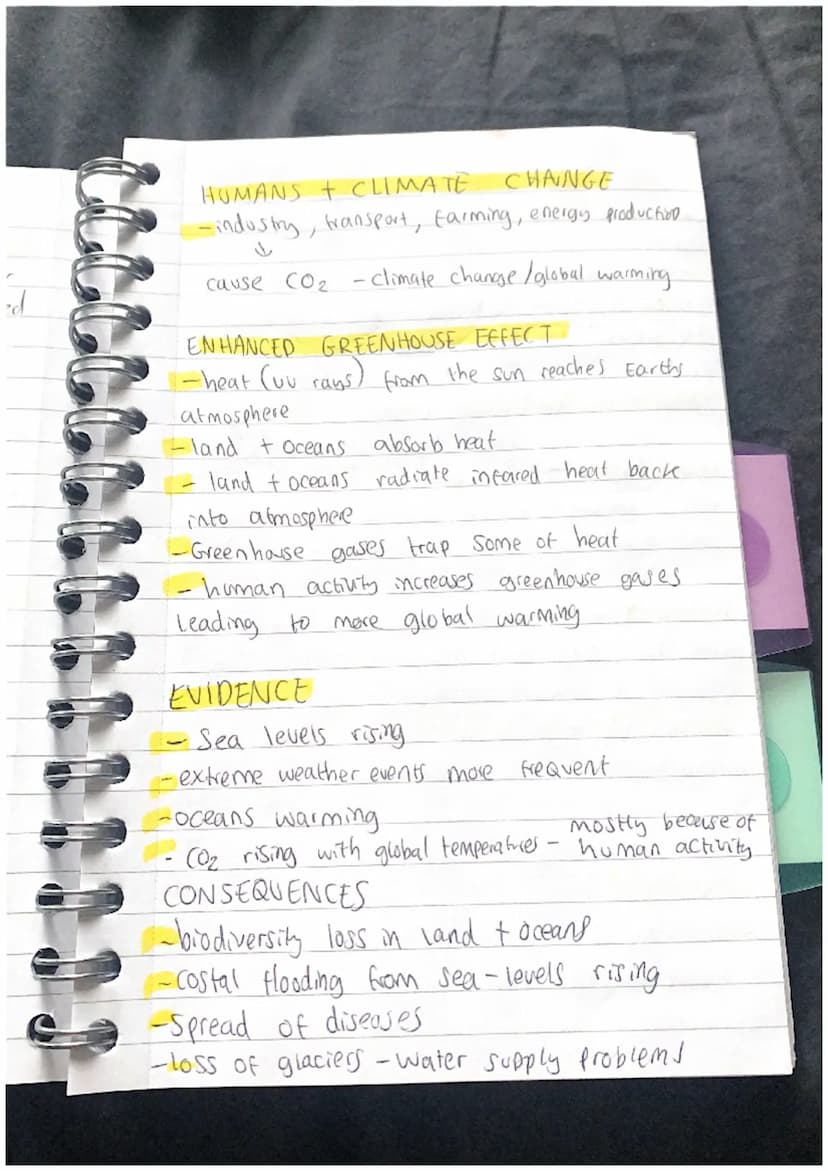 HUMANS + CLIMATE CHANGE
-industry, transport, farming, energy production
↓
cause CO2 - climate change/global warming
ENHANCED GREENHOUSE EFFECT
-heat (uv rays) from the sun reaches Earths
atmosphere
-land + oceans absorb heat
- land + oceans radiate infared heat back
into atmosphere
-Greenhouse gases trap some of heat
- human activity increases greenhouse gases
leading to more global warming
EVIDENCE
- Sea levels rising
-extreme weather events more frequent
-oceans warming
- CO2 rising with global temperatures - mostly because of
human activity
CONSEQUENCES
-biodiversity loss in land + oceans
-costal flooding from sea-levels rising
-Spread of diseases
-loss of glaciers - water supply problems